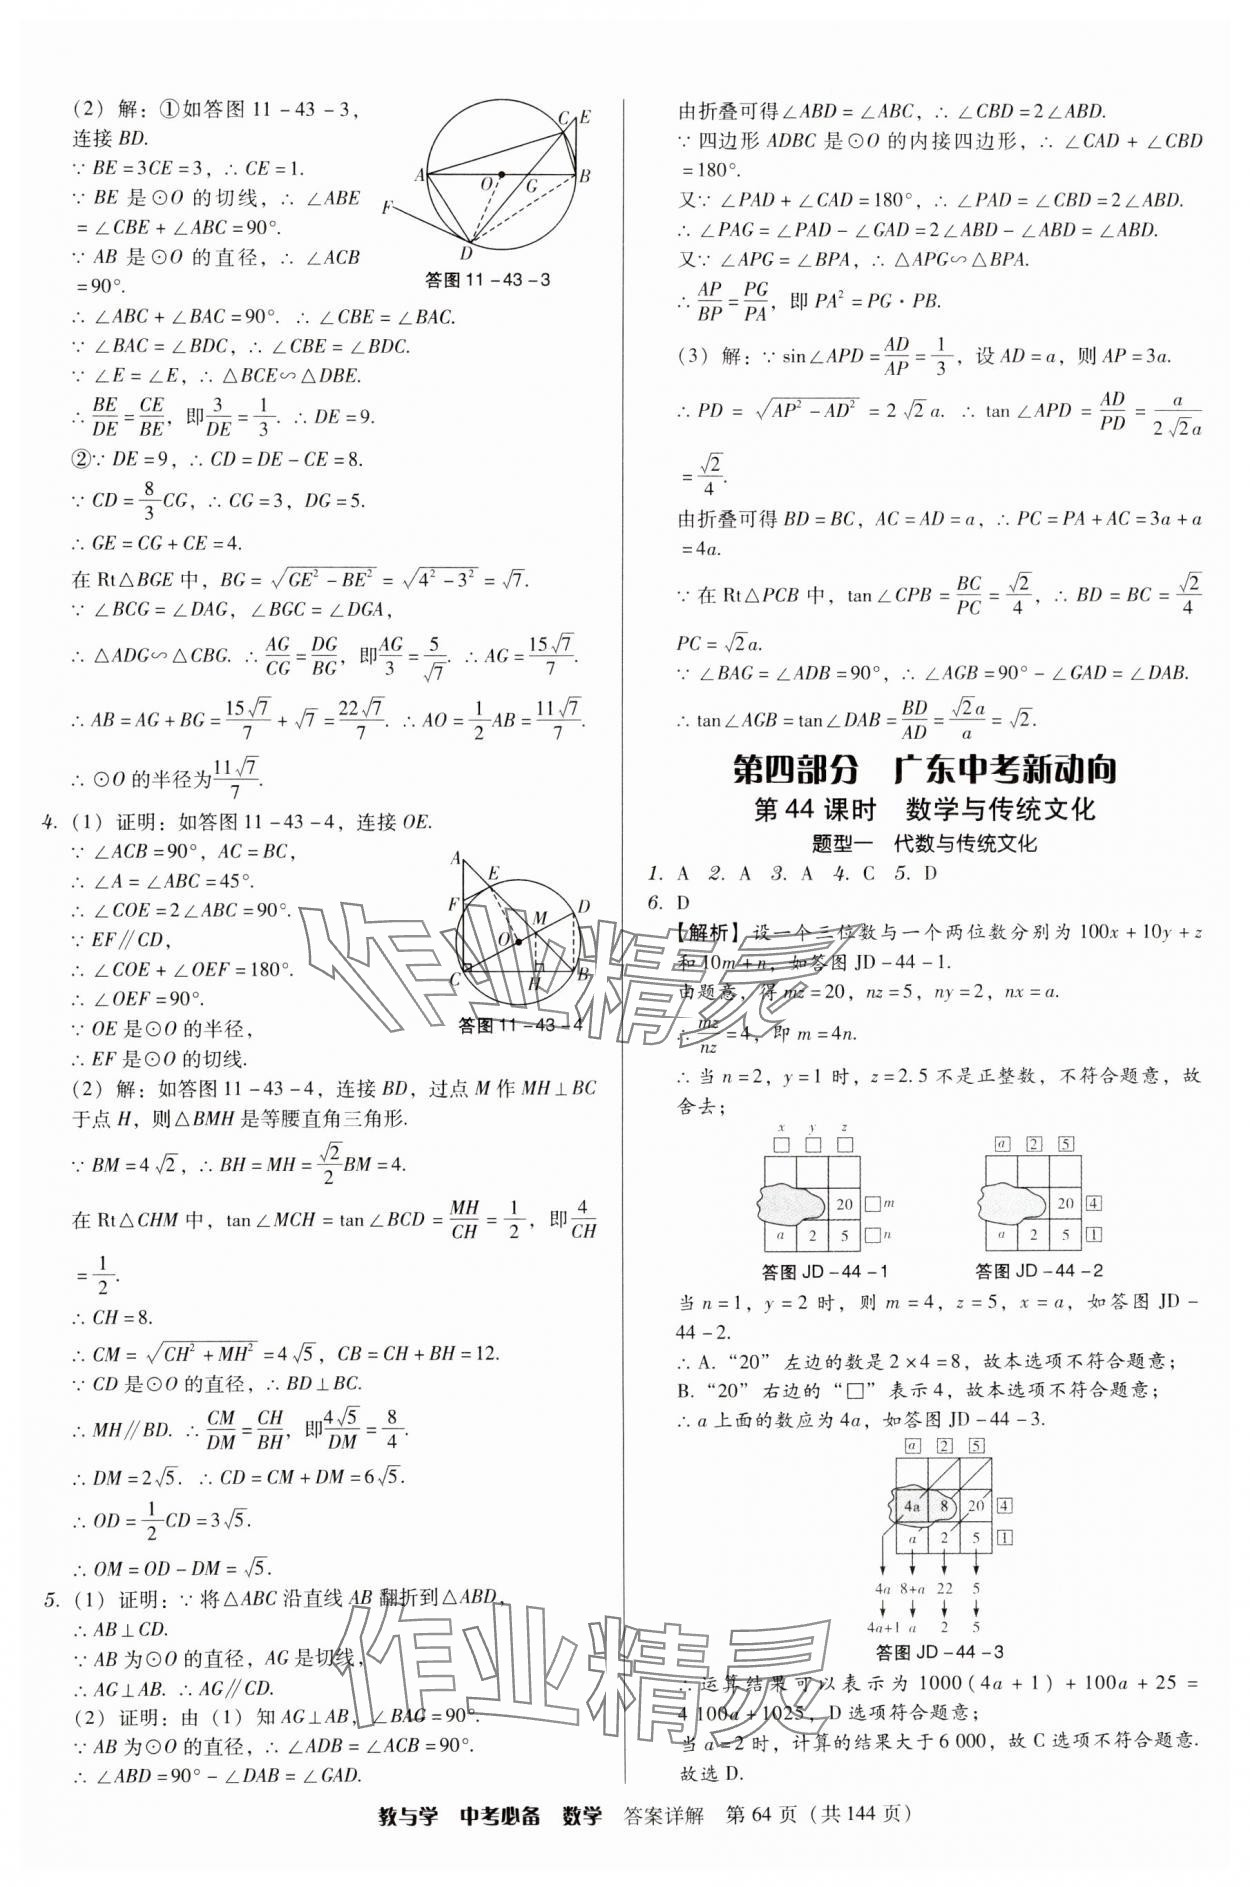 (2) 解：①如答图 11－43－3，
连接 BD.
∵ BE＝3CE＝3，∴ CE＝1.
∵ BE 是⊙O 的切线，∴ ∠ABE
＝∠CBE＋∠ABC＝90°.
∵ AB 是⊙O 的直径，∴ ∠ACB
＝90°.
C E A O G B F D
答图 11－43－3
∴ ∠ABC＋∠BAC＝90°. ∴ ∠CBE＝∠BAC.
∵ ∠BAC＝∠BDC，∴ ∠CBE＝∠BDC.
∵ ∠E＝∠E，∴ △BCE∽△DBE.
∴ BE/DE＝CE/BE，即3/DE＝1/3. ∴ DE＝9.
②∵ DE＝9，∴ CD＝DE－CE＝8.
∵ CD＝8/3CG，∴ CG＝3，DG＝5.
∴ GE＝CG＋CE＝4.
在 Rt△BGE 中，BG＝√(GE²－BE²)＝√(4²－3²)＝√7.
∵ ∠BCG＝∠DAG，∠BGC＝∠DGA，
∴ △ADG∽△CBG. ∴ AG/CG＝DG/BG，即AG/3＝5/√7. ∴ AG＝15√7/7.
∴ AB＝AG＋BG＝15√7/7＋√7＝22√7/7. ∴ AO＝1/2AB＝11√7/7.
∴ ⊙O 的半径为11√7/7.
4. (1) 证明：如答图 11－43－4，连接 OE.
∵ ∠ACB＝90°，AC＝BC，
∴ ∠A＝∠ABC＝45°.
∴ ∠COE＝2∠ABC＝90°.
∵ EF∥CD，
∴ ∠COE＋∠OEF＝180°.
∴ ∠OEF＝90°.
∵ OE 是⊙O 的半径，
∴ EF 是⊙O 的切线.
A E F D M O C H B
答图 11－43－4
(2) 解：如答图 11－43－4，连接 BD，过点 M 作 MH⊥BC
于点 H，则△BMH 是等腰直角三角形.
∵ BM＝4√2，∴ BH＝MH＝√2/2BM＝4.
在 Rt△CHM 中，tan∠MCH＝tan∠BCD＝MH/CH＝1/2，即4/CH
＝1/2.
∴ CH＝8.
∴ CM＝√(CH²＋MH²)＝4√5，CB＝CH＋BH＝12.
∵ CD 是⊙O 的直径，∴ BD⊥BC.
∴ MH∥BD. ∴ CM/DM＝CH/BH，即4√5/DM＝8/4.
∴ DM＝2√5. ∴ CD＝CM＋DM＝6√5.
∴ OD＝1/2CD＝3√5.
∴ OM＝OD－DM＝√5.
5. (1) 证明：∵ 将△ABC 沿直线 AB 翻折到△ABD，
∴ AB⊥CD.
∵ AB 为⊙O 的直径，AG 是切线，
∴ AG⊥AB. ∴ AG∥CD.
(2) 证明：由 (1) 知 AG⊥AB，∠BAG＝90°.
∵ AB 为⊙O 的直径，∴ ∠ADB＝∠ACB＝90°.
∴ ∠ABD＝90°－∠DAB＝∠GAD.
由折叠可得∠ABD＝∠ABC，∴ ∠CBD＝2∠ABD.
∵ 四边形 ADBC 是⊙O 的内接四边形，∴ ∠CAD＋∠CBD
＝180°.
又∵ ∠PAD＋∠CAD＝180°，∴ ∠PAD＝∠CBD＝2∠ABD.
∴ ∠PAG＝∠PAD－∠GAD＝2∠ABD－∠ABD＝∠ABD.
又∵ ∠APG＝∠BPA，∴ △APG∽△BPA.
∴ AP/BP＝PG/PA，即 PA²＝PG·PB.
(3) 解：∵ sin∠APD＝AD/AP＝1/3，设 AD＝a，则 AP＝3a.
∴ PD＝√(AP²－AD²)＝2√2a. ∴ tan∠APD＝AD/PD＝a/2√2a
＝√2/4.
由折叠可得 BD＝BC，AC＝AD＝a，∴ PC＝PA＋AC＝3a＋a
＝4a.
∵ 在 Rt△PCB 中，tan∠CPB＝BC/PC＝√2/4，∴ BD＝BC＝√2/4
PC＝√2a.
∵ ∠BAG＝∠ADB＝90°，∴ ∠AGB＝90°－∠GAD＝∠DAB.
∴ tan∠AGB＝tan∠DAB＝BD/AD＝√2a/a＝√2.
第四部分 广东中考新动向
第 44 课时 数学与传统文化
题型一 代数与传统文化
1. A 2. A 3. A 4. C 5. D
6. D
【解析】设一个三位数与一个两位数分别为 100x＋10y＋z
和 10m＋n，如答图 JD－44－1.
由题意，得 mz＝20，nz＝5，ny＝2，nx＝a.
∴ mz/nz＝4，即 m＝4n.
∴ 当 n＝2，y＝1 时，z＝2.5 不是正整数，不符合题意，故
舍去；
x y z
20 □m
a 2 5 □n
答图 JD－44－1
a 2 5
20 4
a 2 5 1
答图 JD－44－2
当 n＝1，y＝2 时，则 m＝4，z＝5，x＝a，如答图 JD－
44－2.
∴ A.“20”左边的数是 2×4＝8，故本选项不符合题意；
B.“20”右边的“□”表示 4，故本选项不符合题意；
∴ a 上面的数应为 4a，如答图 JD－44－3.
a 2 5
4a 8 20 4
a 2 5 1
4a 8+a 22 5
4a+1 a 2 5
答图 JD－44－3
∴ 运算结果可以表示为 1000(4a＋1)＋100a＋25＝
4 100a＋1025，D 选项符合题意；
当 a＝2 时，计算的结果大于 6 000，故 C 选项不符合题意.
故选 D.
教与学 中考必备 数学 答案详解 第 64 页（共 144 页）
作业精灵
作业精灵